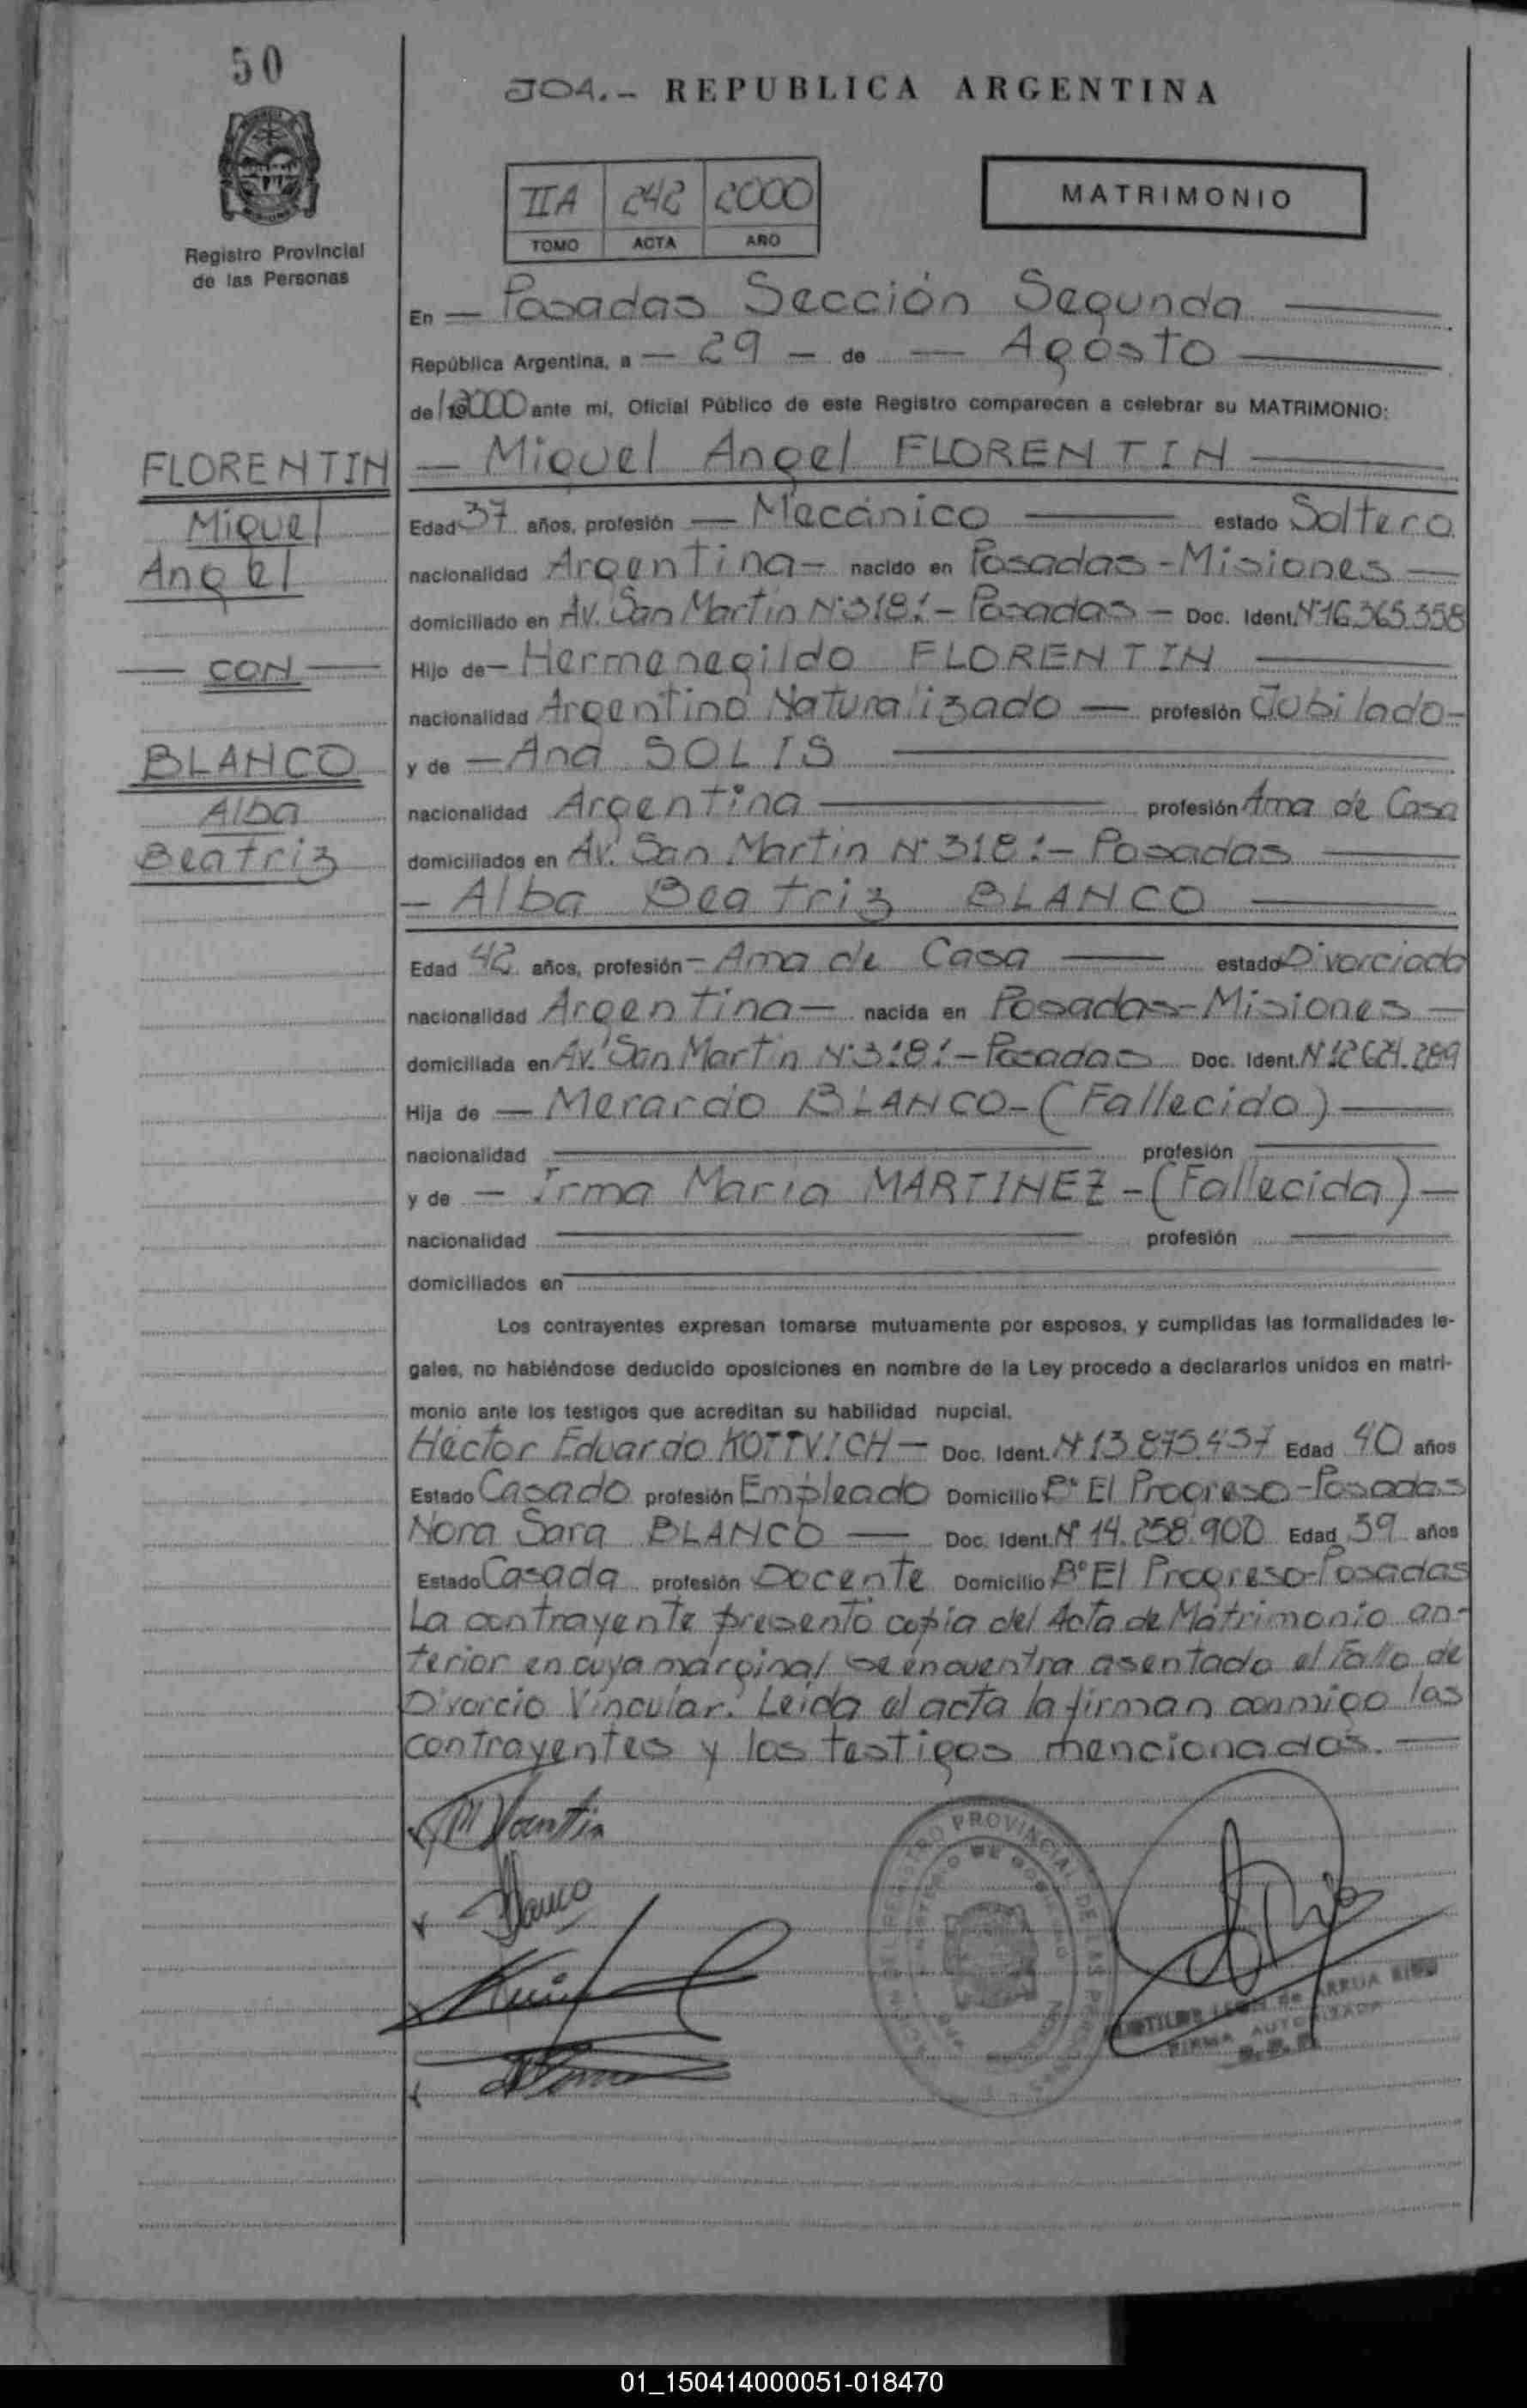 50
JOA.- REPUBLICA ARGENTINA
IIA 242 2000
TOMO ACTA AÑO
MATRIMONIO
Registro Provincial
de las Personas
En — Posadas Sección Segunda —
República Argentina, a — 29 — de — Agosto —
de 2000 ante mí, Oficial Público de este Registro comparecen a celebrar su MATRIMONIO:
FLORENTIN
Miguel
Angel
— CON —
BLANCO
Alba
Beatriz
— Miguel Angel FLORENTIN —
Edad 37 años, profesión — Mecánico — estado Soltero
nacionalidad Argentina — nacido en Posadas - Misiones —
domiciliado en Av. San Martin N° 318!- Posadas — Doc. Ident. N° 16.365.358
Hijo de — Hermenegildo FLORENTIN —
nacionalidad Argentino Naturalizado — profesión Jubilado -
y de — Ana SOLIS —
nacionalidad Argentina — profesión Ama de Casa
domiciliados en Av. San Martin N° 318!- Posadas —
— Alba Beatriz BLANCO —
Edad 42 años, profesión — Ama de Casa — estado Divorciada
nacionalidad Argentina — nacida en Posadas - Misiones —
domiciliada en Av. San Martin N° 318!- Posadas Doc. Ident. N° 12.624.289
Hija de — Merardo BLANCO - (Fallecido) —
nacionalidad — profesión —
y de — Irma Maria MARTINEZ - (Fallecida) —
nacionalidad — profesión —
domiciliados en —
Los contrayentes expresan tomarse mutuamente por esposos, y cumplidas las formalidades le-
gales, no habiéndose deducido oposiciones en nombre de la Ley procedo a declararlos unidos en matri-
monio ante los testigos que acreditan su habilidad nupcial.
Héctor Eduardo KOTTVICH — Doc. Ident. N° 13.875.457 Edad 40 años
Estado Casado profesión Empleado Domicilio B° El Progreso - Posadas
Nora Sara BLANCO — Doc. Ident. N° 14.258.900 Edad 39 años
Estado Casada profesión Docente Domicilio B° El Progreso - Posadas
La contrayente presentó copia del Acta de Matrimonio an-
terior en cuya marginal se encuentra asentado el Fallo de
Divorcio Vincular. Leida el acta la firman conmigo los
contrayentes y los testigos mencionados. —
PROVINCIAL DE LAS PERSONAS
FIRMA AUTORIZADA
01_150414000051-018470